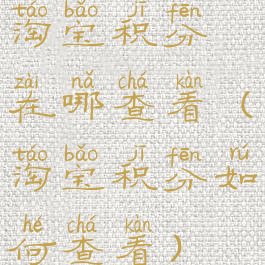 táo bǎo jī fēn
淘宝积分
zài nǎ chá kàn
在哪查看(
táo bǎo jī fēn rú
淘宝积分如
hé chá kàn
何查看)